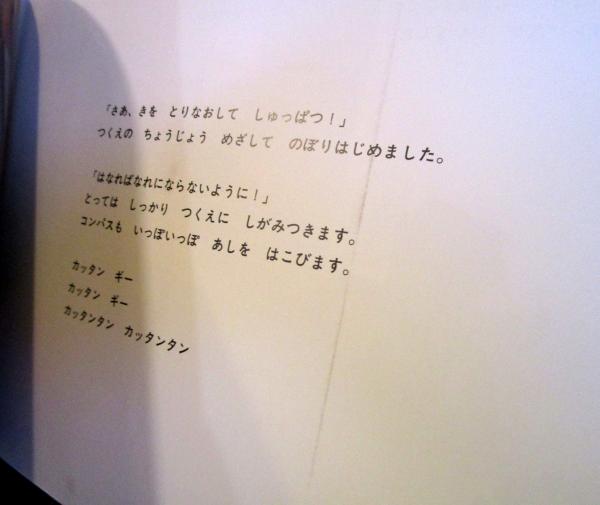 「さあ、きを　とりなおして　しゅっぱつ！」
つくえの　ちょうじょう　めざして　のぼりはじめました。
「はなればなれにならないように！」
とっては　しっかり　つくえに　しがみつきます。
コンパスも　いっぽいっぽ　あしを　はこびます。
カッタン　ギー
カッタン　ギー
カッタンタン　カッタンタン